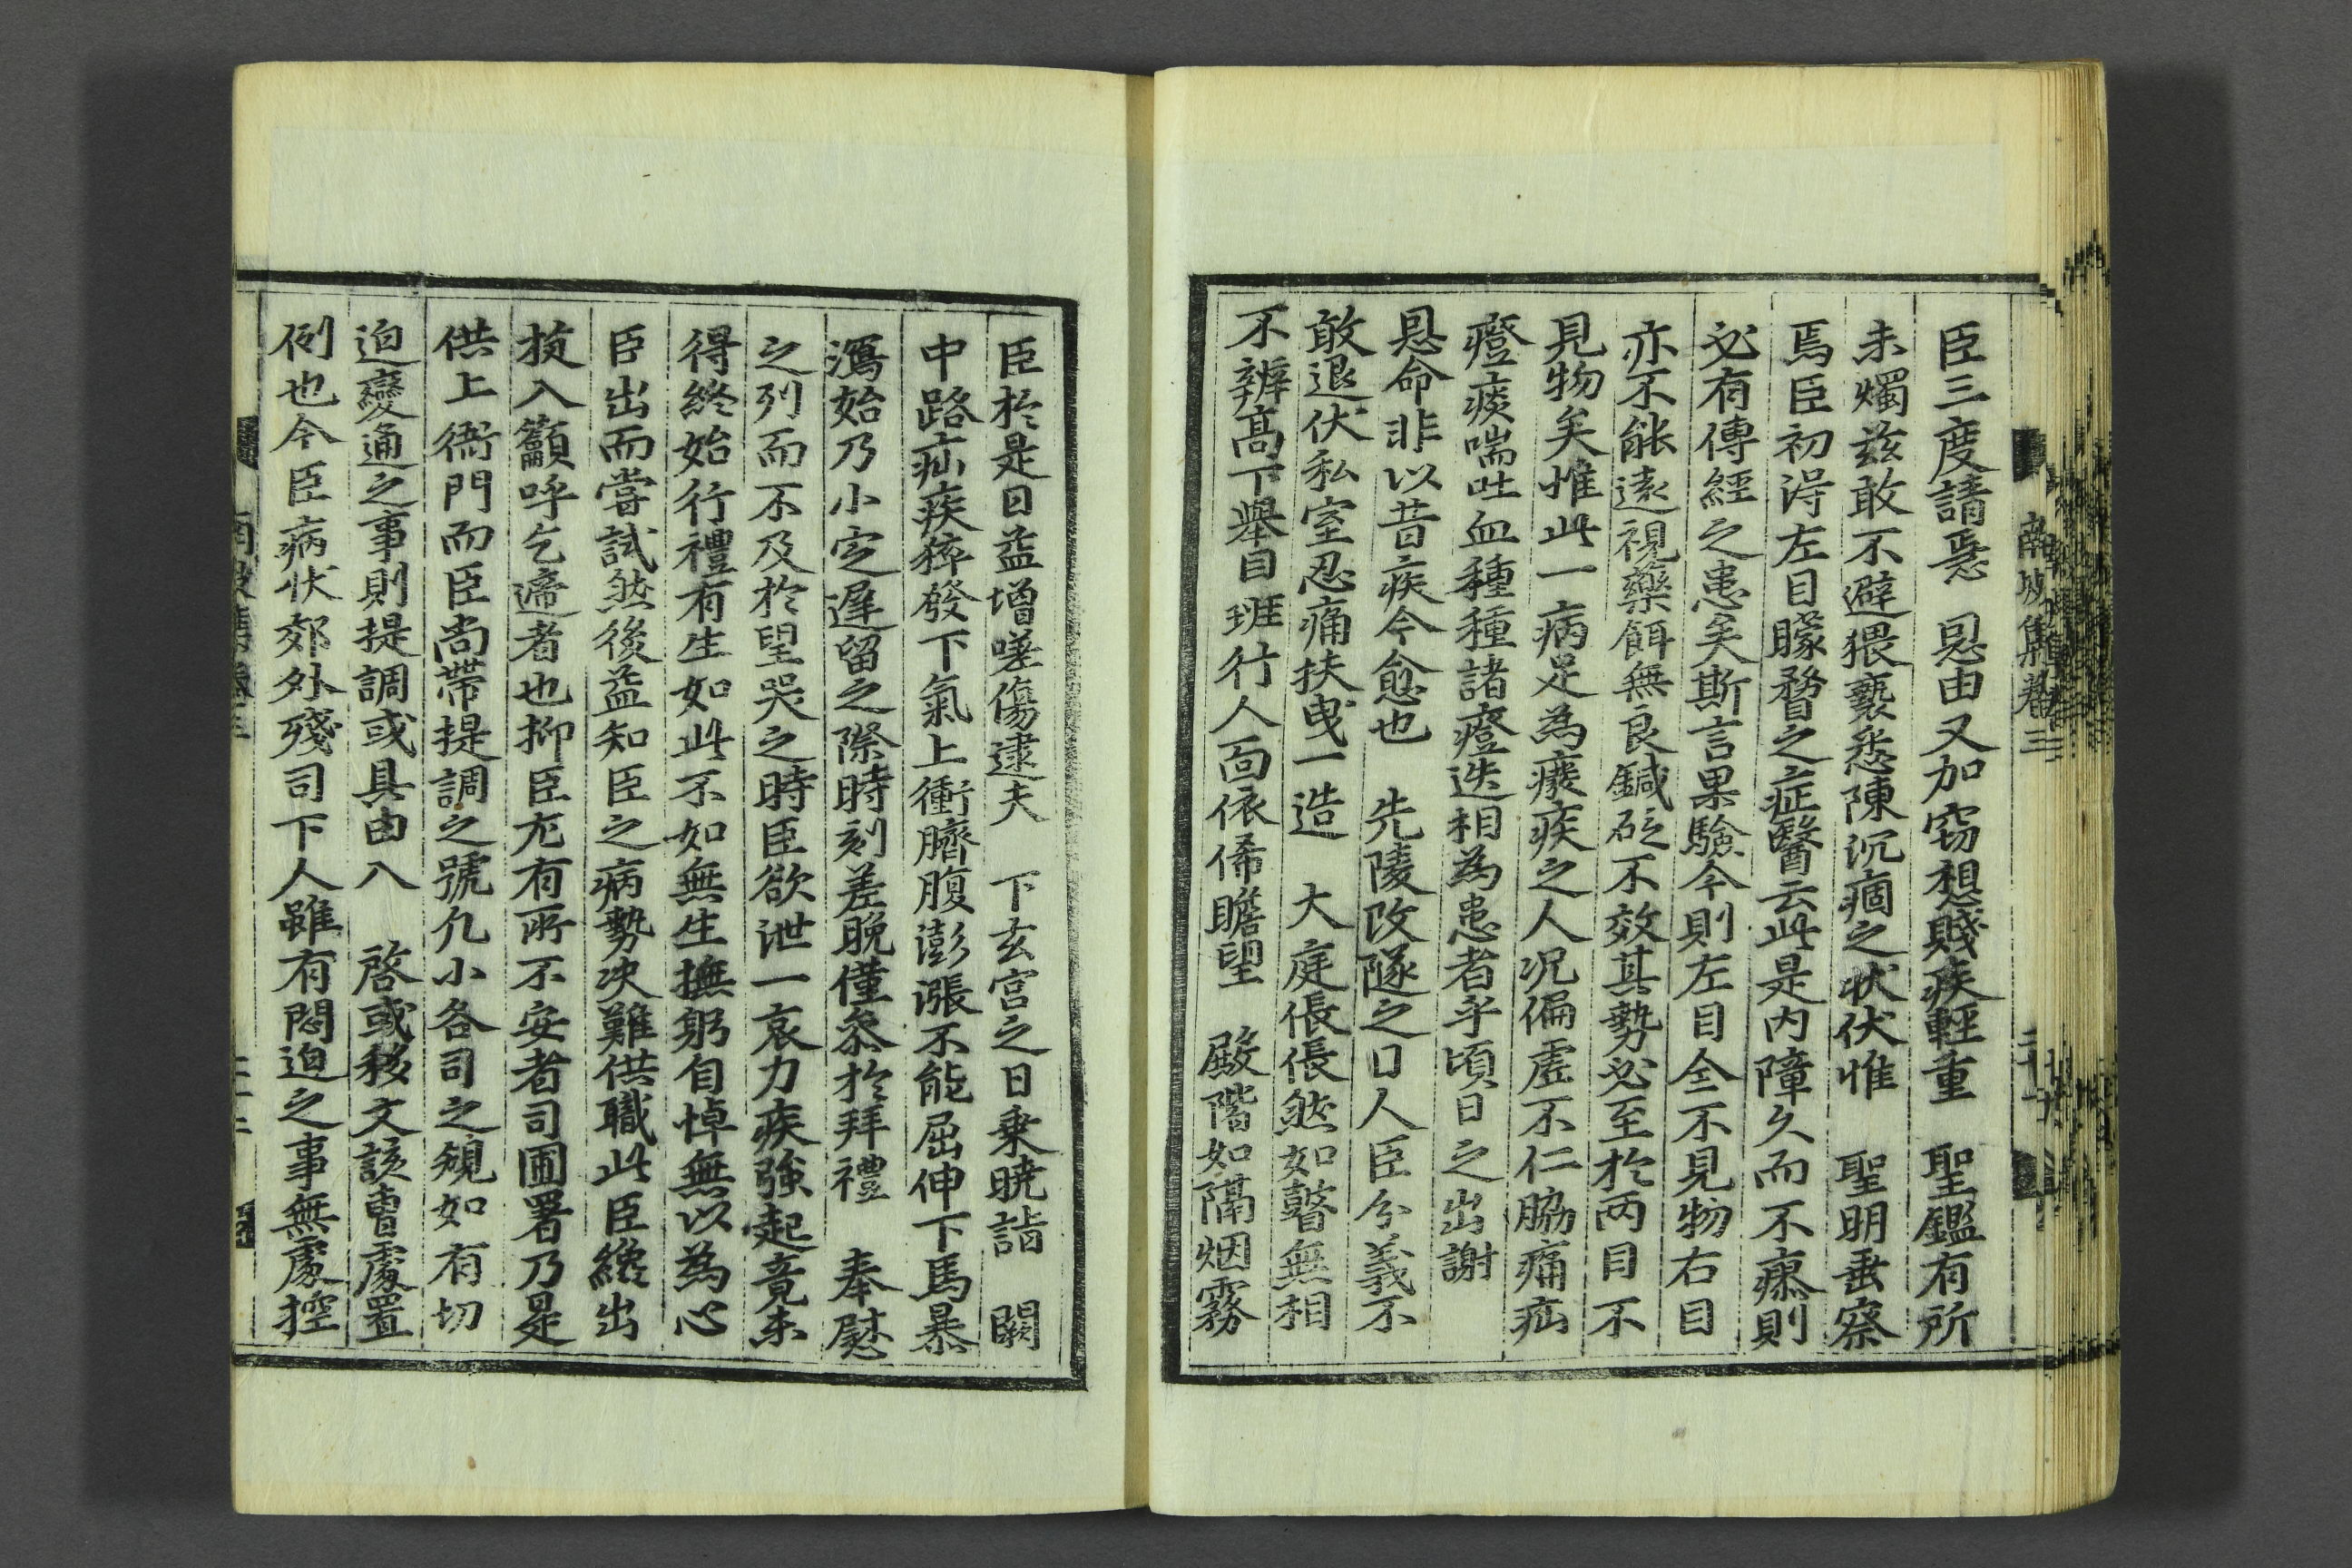 臣三度請急　恩由又加窃想賤疾輕重　聖鑑有所
未燭玆敢不避猥褻悉陳沉痼之狀伏惟　聖明垂察
焉臣初得左目矇瞀之症醫云此是內障久而不瘳則
必有傳經之患矣斯言果驗今則左目全不見物右目
亦不能遠視藥餌無良鍼砭不效其勢必至於兩目不
見物矣惟此一病足為癈疾之人况偏虛不仁脇痛疝
癊痰喘吐血種種諸癊迭相為患者乎頃日之出謝
恩命非以昔疾今愈也　先陵改隧之日人臣分義不
敢退伏私室忍痛扶曳一造　大庭倀倀然如瞽無相
不辨高下舉目班行人面依俙瞻望　殿階如隔烟霧
臣於是日益增嗟傷逮夫　下玄宮之日乗曉詣　闕
中路疝疾猝發下氣上衝臍腹澎漲不能屈伸下馬暴
瀉始乃小定遲留之際時刻差晚僅參於拜禮　奉慰
之列而不及於望哭之時臣欲泄一哀力疾強起竟未
得終始行禮有生如此不如無生撫躬自悼無以為心
臣出而嘗試然後益知臣之病勢决難供職此臣纔出
旋入籲呼乞遞者也抑臣尤有所不安者司圃署乃是
供上衙門而臣尚帶提調之號凡小各司之䂓如有切
迫變通之事則提調或具由入　啓或移文該曹處置
例也今臣病伏郊外殘司下人雖有悶迫之事無處控
南坡集卷三